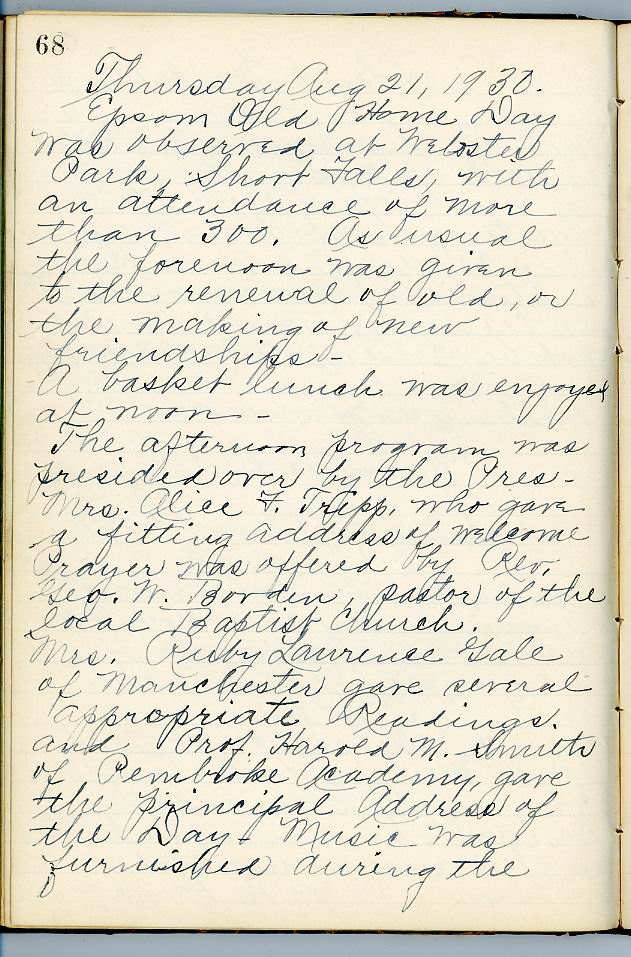 68
Thursday Aug 21, 1930.
Epsom Old Home Day
was observed at Webster
Park, Short Falls, with
an attendance of more
than 300. As usual
the forenoon was given
to the renewal of old, or
the making of new
friendships -
A basket lunch was enjoyed
at noon -
The afternoon program was
presided over by the Pres-
Mrs. Alice F. Tripp, who gave
a fitting address of welcome
Prayer was offered by Rev.
Geo. W. Borden, pastor of the
local Baptist Church.
Mrs. Ruby Laurence Gale
of Manchester gave several
appropriate Readings.
and Prof. Harold M. Smith
of Pembroke Academy, gave
the principal Address of
the Day - Music was
furnished during the